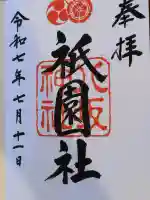 奉拝
祇園社
八坂神社
令和七年七月十一日